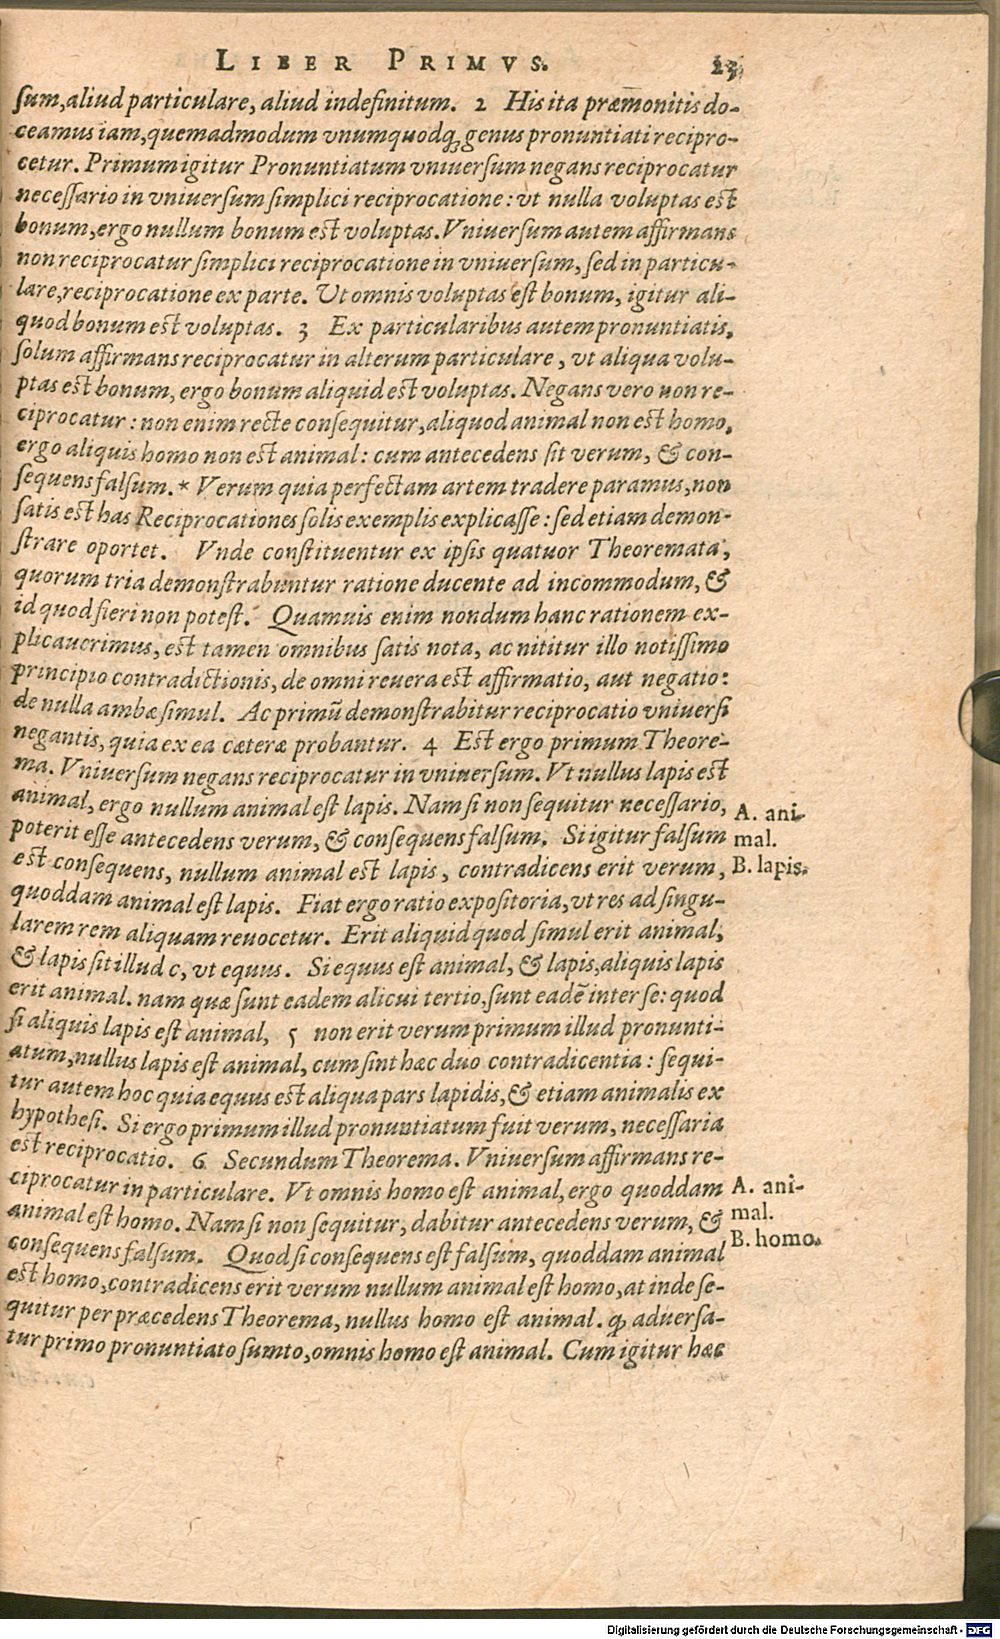 LIBER PRIMVS. 23
sum, aliud particulare, aliud indefinitum. 2 His ita præmonitis do-
ceamus iam, quemadmodum vnumquodq; genus pronuntiati recipro-
cetur. Primum igitur Pronuntiatum vniuersum negans reciprocatur
necessario in vniuersum simplici reciprocatione: vt nulla voluptas est
bonum, ergo nullum bonum est voluptas. Vniuersum autem affirmans
non reciprocatur simplici reciprocatione in vniuersum, sed in particu-
lare, reciprocatione ex parte. Vt omnis voluptas est bonum, igitur ali-
quod bonum est voluptas. 3 Ex particularibus autem pronuntiatis,
solum affirmans reciprocatur in alterum particulare, vt aliqua volu-
ptas est bonum, ergo bonum aliquid est voluptas. Negans vero non re-
ciprocatur: non enim recte consequitur, aliquod animal non est homo,
ergo aliquis homo non est animal: cum antecedens sit verum, & con-
sequens falsum. * Verum quia perfectam artem tradere paramus, non
satis est has Reciprocationes solis exemplis explicasse: sed etiam demon-
strare oportet. Vnde constituentur ex ipsis quatuor Theoremata,
quorum tria demonstrabuntur ratione ducente ad incommodum, &
id quod fieri non potest. Quamuis enim nondum hanc rationem ex-
plicauerimus, est tamen omnibus satis nota, ac nititur illo notissimo
principio contradictionis, de omni reuera est affirmatio, aut negatio:
de nulla ambæ simul. Ac primũ demonstrabitur reciprocatio vniuersi
negantis, quia ex ea cæteræ probantur. 4 Est ergo primum Theore-
ma. Vniuersum negans reciprocatur in vniuersum. Vt nullus lapis est
animal, ergo nullum animal est lapis. Nam si non sequitur necessario,
poterit esse antecedens verum, & consequens falsum. Si igitur falsum
est consequens, nullum animal est lapis, contradicens erit verum,
quoddam animal est lapis. Fiat ergo ratio expositoria, vt res ad singu-
larem rem aliquam reuocetur. Erit aliquid quod simul erit animal,
& lapis sit illud c, vt equus. Si equus est animal, & lapis, aliquis lapis
erit animal. nam quæ sunt eadem alicui tertio, sunt eadẽ inter se: quod
si aliquis lapis est animal, 5 non erit verum primum illud pronunti-
atum, nullus lapis est animal, cum sint hæc duo contradicentia: sequi-
tur autem hoc quia equus est aliqua pars lapidis, & etiam animalis ex
hypothesi. Si ergo primum illud pronuntiatum fuit verum, necessaria
est reciprocatio. 6 Secundum Theorema. Vniuersum affirmans re-
ciprocatur in particulare. Vt omnis homo est animal, ergo quoddam
animal est homo. Nam si non sequitur, dabitur antecedens verum, &
consequens falsum. Quod si consequens est falsum, quoddam animal
est homo, contradicens erit verum nullum animal est homo, at inde se-
quitur per præcedens Theorema, nullus homo est animal. q; aduersa-
tur primo pronuntiato sumto, omnis homo est animal. Cum igitur hæc
A. ani-
mal.
B. lapis.
A. ani-
mal.
B. homo.
Digitalisierung gefördert durch die Deutsche Forschungsgemeinschaft - DFG